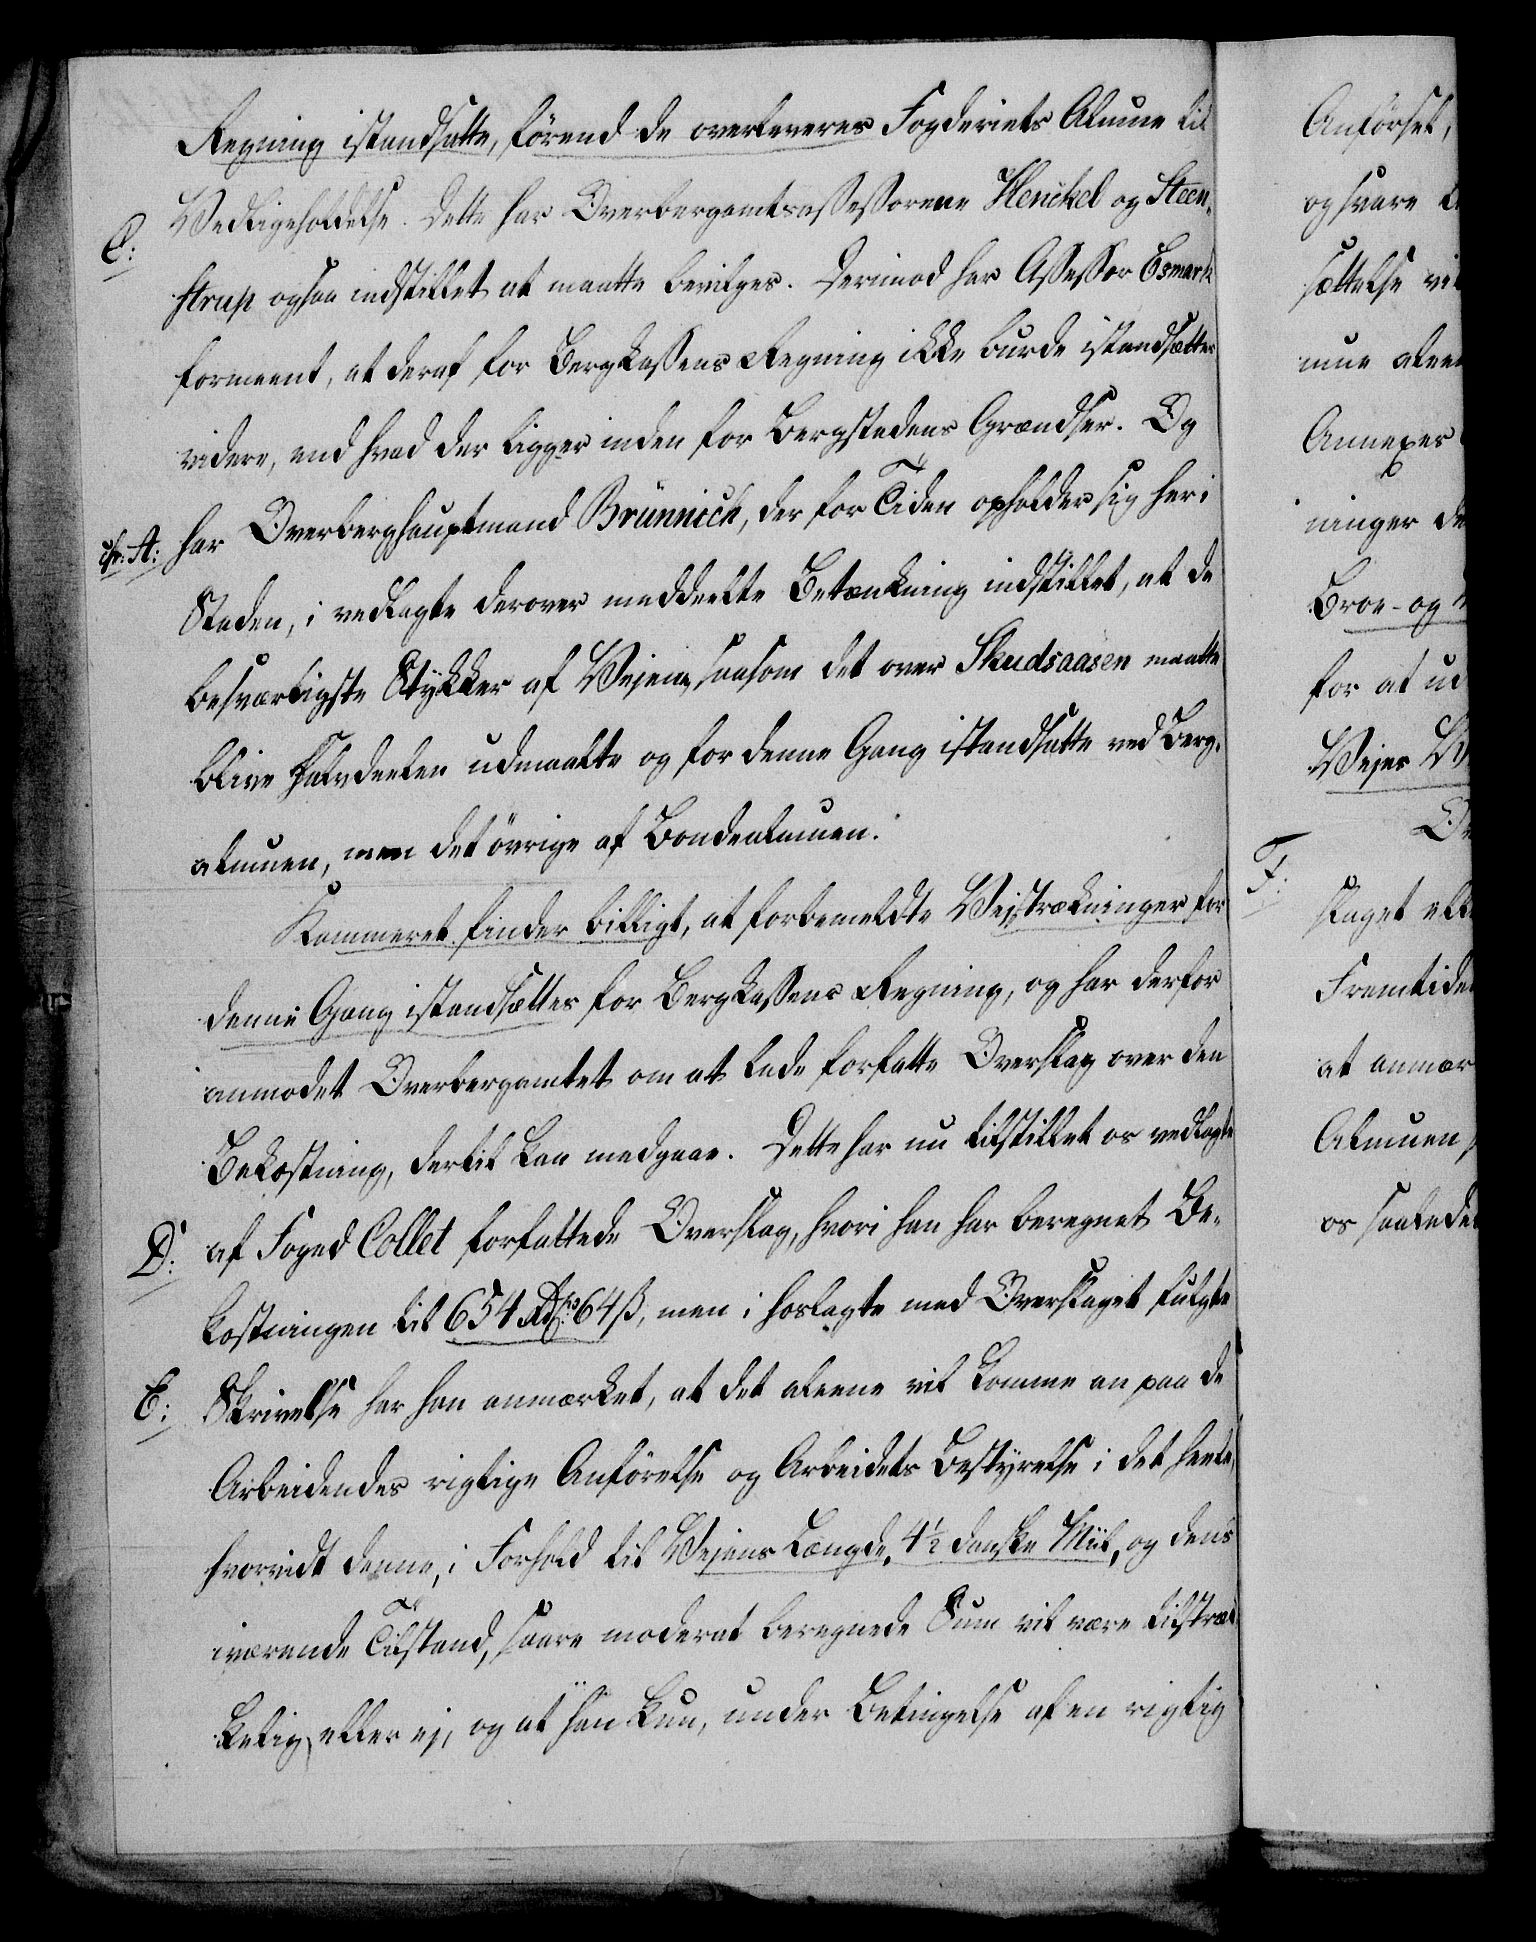 Regning istandsatte, förend de overleveres Fogderiets Almue til
Vedligeholdelse. Dette har Overbergamtsassessorene Henckel og Steen-
C:
strup ogsaa indstillet at maatte bevilges. Derimod har Assessor Esmark
formeent, at deraf for Bergkassens Regning ikke burde istandsættes
videre, end hvad der ligger inden for Bergstedens Grændser. Og
cfr. A:
har Overberghauptmand Brünnich, der for Tiden opholder sig her i
Staden, i vedlagte derover meddeelte Betænkning indstillet, at de
besværligste Stykker af Vejene, saasom det over Skudsaasen maatte
blive halvdeelen udmaalte og for denne Gang istandsatte ved Berg-
almuen, men det övrige af Bondealmuen.
Kammeret finder billigt, at forbemeldte Vejstrækninger for
denne Gang istandsættes for Bergkassens Regning, og har derfor
anmodet Overbergamtet om at lade forfatte Overslag over den
Bekostning, dertil kan medgaae. Dette har nu tilstillet os vedlagte
D:
af Foged Collet forfattede Overslag, hvori han har beregnet Be-
kostningen til 654 Rdr 64 ß, men i hoslagte med Overslaget fulgte
E:
Skrivelse har han anmærket, at det alene vil komme an paa de
Arbeidendes rigtige Anförelse og Arbeidets Bestyrelse i det heele,
hvorvidt denne, i Forhold til Vejens Længde, 4½ danske Miil, og dens
iværende Tilstand, saare moderat beregnede Sum vil være tilstræk-
kelig eller ej, og at han kun, under Betingelse af en rigtig
Anförsel,
og svare
sættelse
mue
Annexer
ninger
Broe- og
for at
Vejes
F:
slaget
Fremtiden
at anmær
Almuen
os saaledes